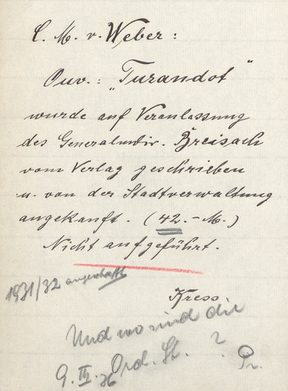 C. M. v. Weber:
Ouv.: „Turandot“
wurde auf Veranlassung
des Generalmdir. Breisach
vom Verlag geschrieben
u. von der Stadtverwaltung
angekauft. (42.-M.)
Nicht aufgeführt.
1931/32 angeschafft
Kress.
Und wo sind die
Ord. St. ?
9. III. 36